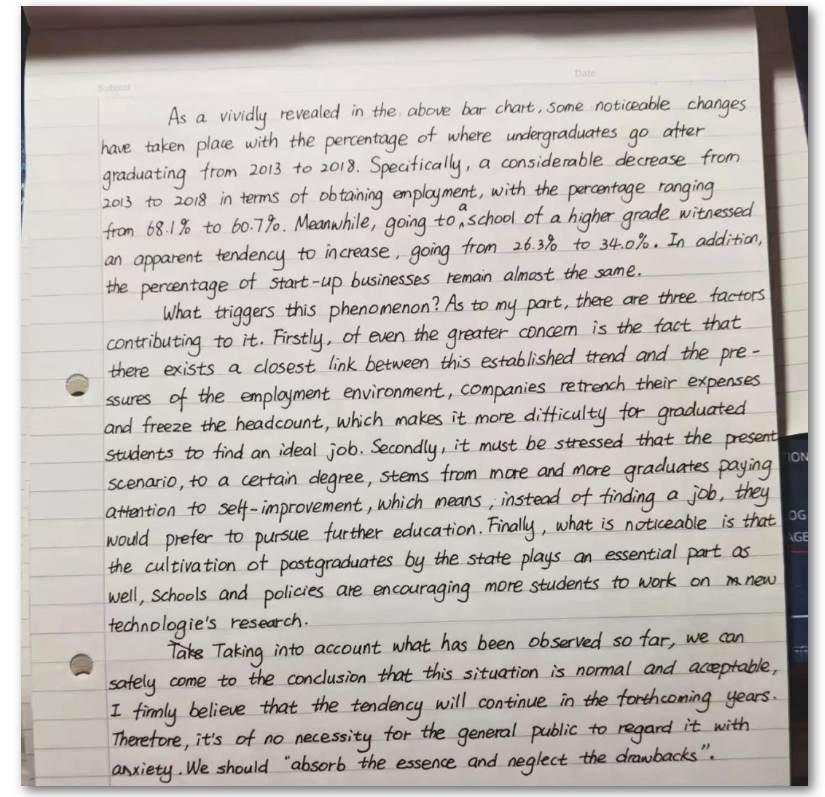 Subject
Date
As a vividly revealed in the above bar chart, some noticeable changes
have taken place with the percentage of where undergraduates go after
graduating from 2013 to 2018. Specifically, a considerable decrease from
2013 to 2018 in terms of obtaining employment, with the percentage ranging
from 68.1% to 60.7%. Meanwhile, going to a school of a higher grade witnessed
an apparent tendency to increase, going from 26.3% to 34.0%. In addition,
the percentage of start-up businesses remain almost the same.
What triggers this phenomenon? As to my part, there are three factors
contributing to it. Firstly, of even the greater concern is the fact that
there exists a closest link between this established trend and the pre-
ssures of the employment environment, companies retrench their expenses
and freeze the headcount, which makes it more difficulty for graduated
students to find an ideal job. Secondly, it must be stressed that the present
scenario, to a certain degree, stems from more and more graduates paying
attention to self-improvement, which means, instead of finding a job, they
would prefer to pursue further education. Finally, what is noticeable is that
the cultivation of postgraduates by the state plays an essential part as
well, schools and policies are encouraging more students to work on new
technologie's research.
Take Taking into account what has been observed so far, we can
safely come to the conclusion that this situation is normal and acceptable,
I firmly believe that the tendency will continue in the forthcoming years.
Therefore, it's of no necessity for the general public to regard it with
anxiety. We should "absorb the essence and neglect the drawbacks".
ION
OG
AGE